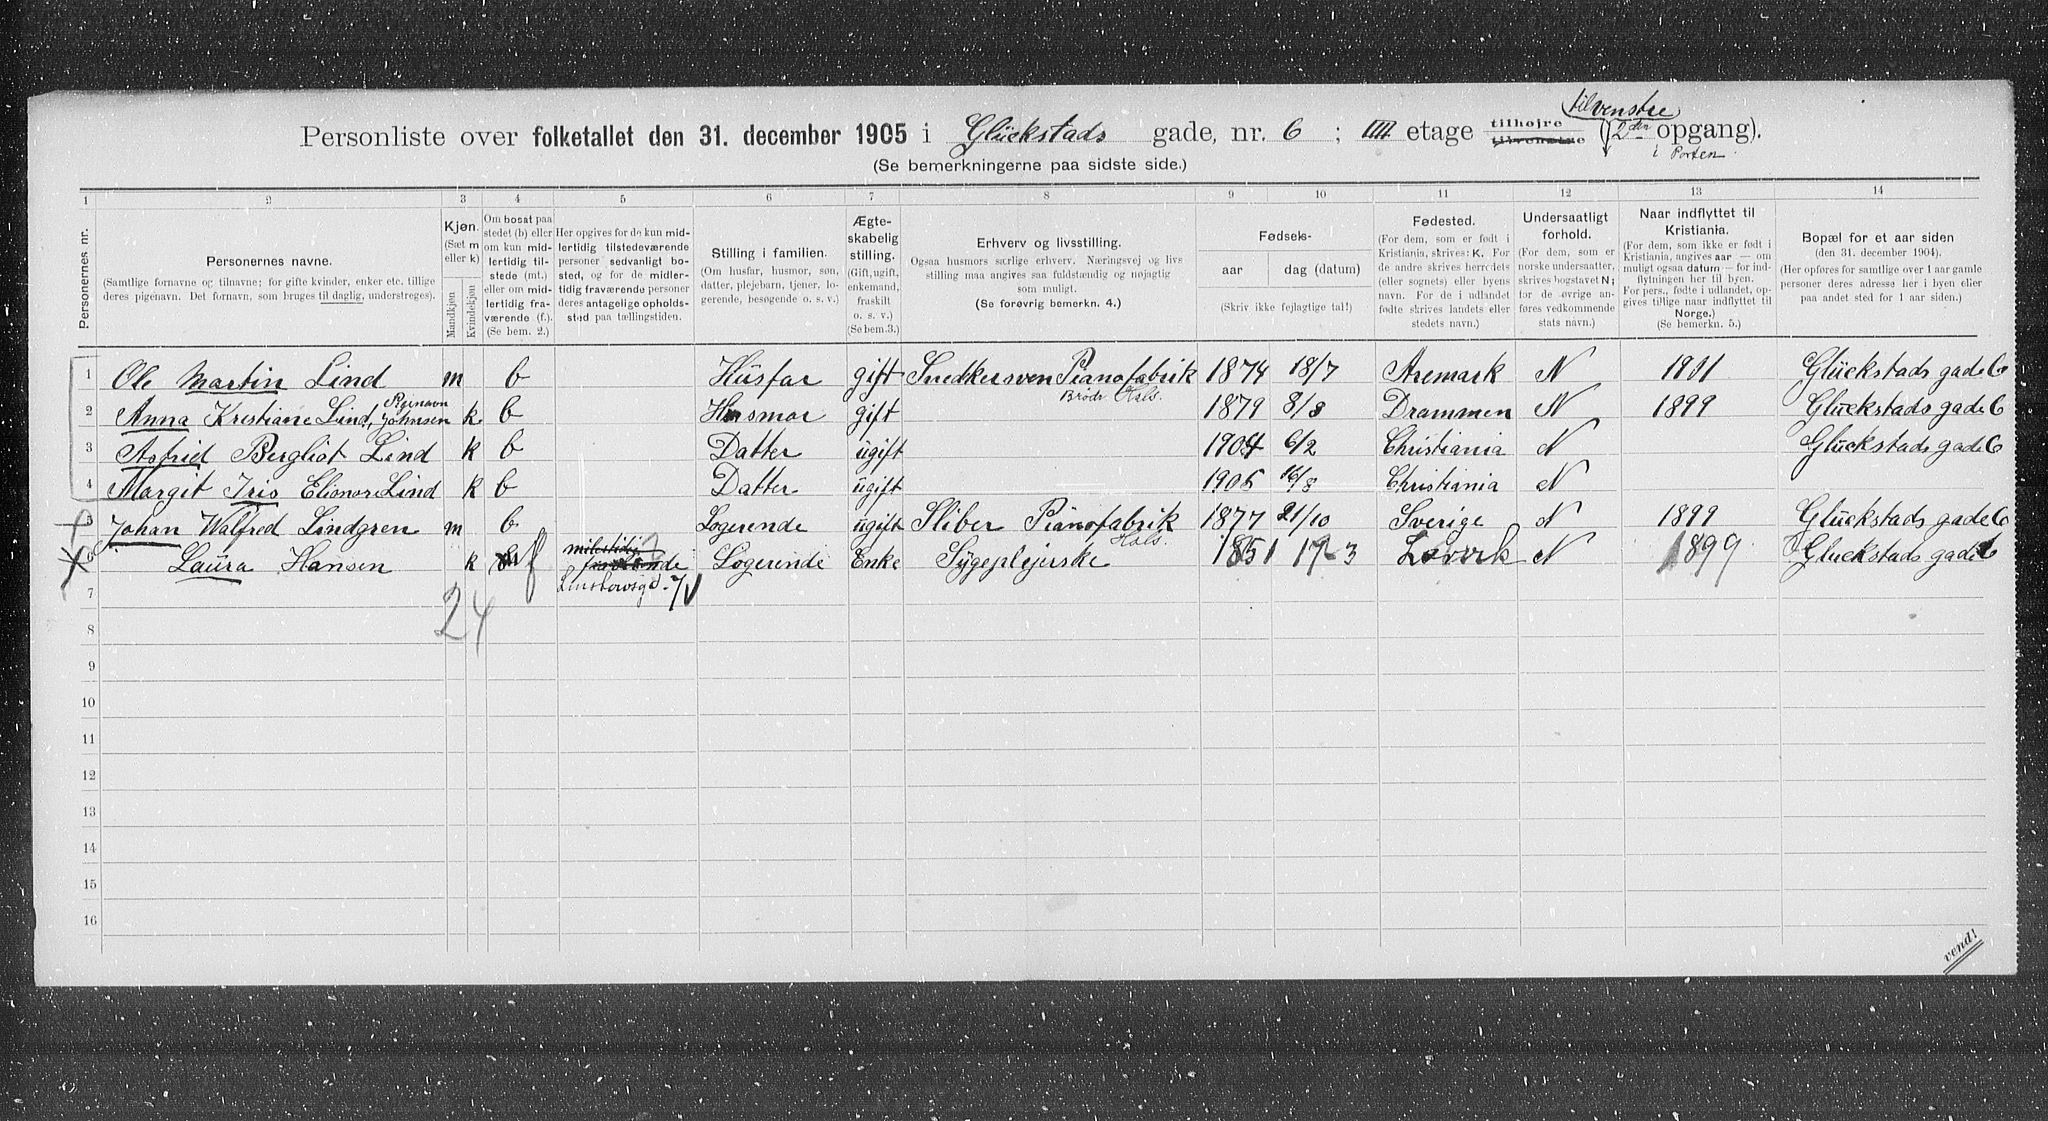 tilvenstre
Personliste over folketallet den 31. december 1905 i Glückstads gade, nr. 6 ; IIII etage tilhøjre tilvenstre (2den opgang).
i Porten
(Se bemerkningerne paa sidste side.)
1 2 3 4 5 6 7 8 9 10 11 12 13 14
Personernes nr.
Personernes navne.
(Samtlige fornavne og tilnavne; for gifte kvinder, enker etc. tillige
deres pigenavn. Det fornavn, som bruges til daglig, understreges).
Kjøn.
(Sæt m
eller k)
Mandkjøn
Kvindekjøn
Om bosat paa
stedet (b) eller
om kun mid-
lertidig til-
stede (mt.)
eller om mid-
lertidig fra-
værende (f.).
(Se bem. 2.)
Her opgives for de kun mid-
lertidig tilstedeværende
personer sedvanligt bo-
sted, og for de midler-
tidig fraværende personer
deres antagelige opholds-
sted paa tællingstiden.
Stilling i familien.
(Om husfar, husmor, søn,
datter, plejebarn, tjener, lo-
gerende, besøgende o. s. v.)
Ægte-
skabelig
stilling.
(Gift, ugift,
enkemand,
fraskilt
o. s. v.)
(Se bem.3.)
Erhverv og livsstilling.
Ogsaa husmors særlige erhverv. Næringsvej og livs
stilling maa angives saa fuldstændig og nøjagtig
som muligt.
(Se forøvrig bemerkn. 4.)
Fødsels-
aar
dag (datum)
(Skriv ikke fejlagtige tal!)
Fødested.
(For dem, som er født i
Kristiania, skrives: K. For
de andre skrives herredets
(eller sognets) eller byens
navn. For de i udlandet
fødte skrives landets eller
stedets navn.)
Undersaatligt
forhold.
(For dem, som er
norske undersaatter,
skrives bogstavet N;
for de øvrige an-
føres vedkommende
stats navn.)
Naar indflyttet til
Kristiania.
(For dem, som ikke er født i
Kristiania, angives aar — om
muligt ogsaa datum — for ind-
flytningen her til byen.
For pers., fødte i udlandet, op-
gives tillige naar indflyttet til
Norge.)
(Se bemerkn. 5.)
Bopæl for et aar siden
(den 31. december 1904).
(Her opføres for samtlige over 1 aar gamle
personer deres adresse her i byen eller
paa andet sted for 1 aar siden.)
1 Ole Martin Lind m b Husfar gift Snedkersven Pianofabrik Brødr Hals. 1874 18/7 Aremark N 1901 Glückstads gade 6
2 Anna Krestiane Lind, Pginavn Johnsen k b Husmor gift 1879 8/8 Drammen N 1899 Glückstads gade 6
3 Astrid Bergliot Lind k b Datter ugift 1904 6/2 Christiania N Glückstads gade 6
4 Margit Iris Elionore Lind k b Datter ugift 1905 16/8 Christiania N
5 Johan Walfred Lindgren m b Logerende ugift Sliber Pianofabrik Hals. 1877 21/10 Sverige N 1899 Glückstads gade 6
6 Laura Hansen k f Logerende Enke Sygeplejerske 1851 17-3 N 1899 Gluckstads gade 6
7
24
8
9
10
11
12
13
14
15
16
vend!